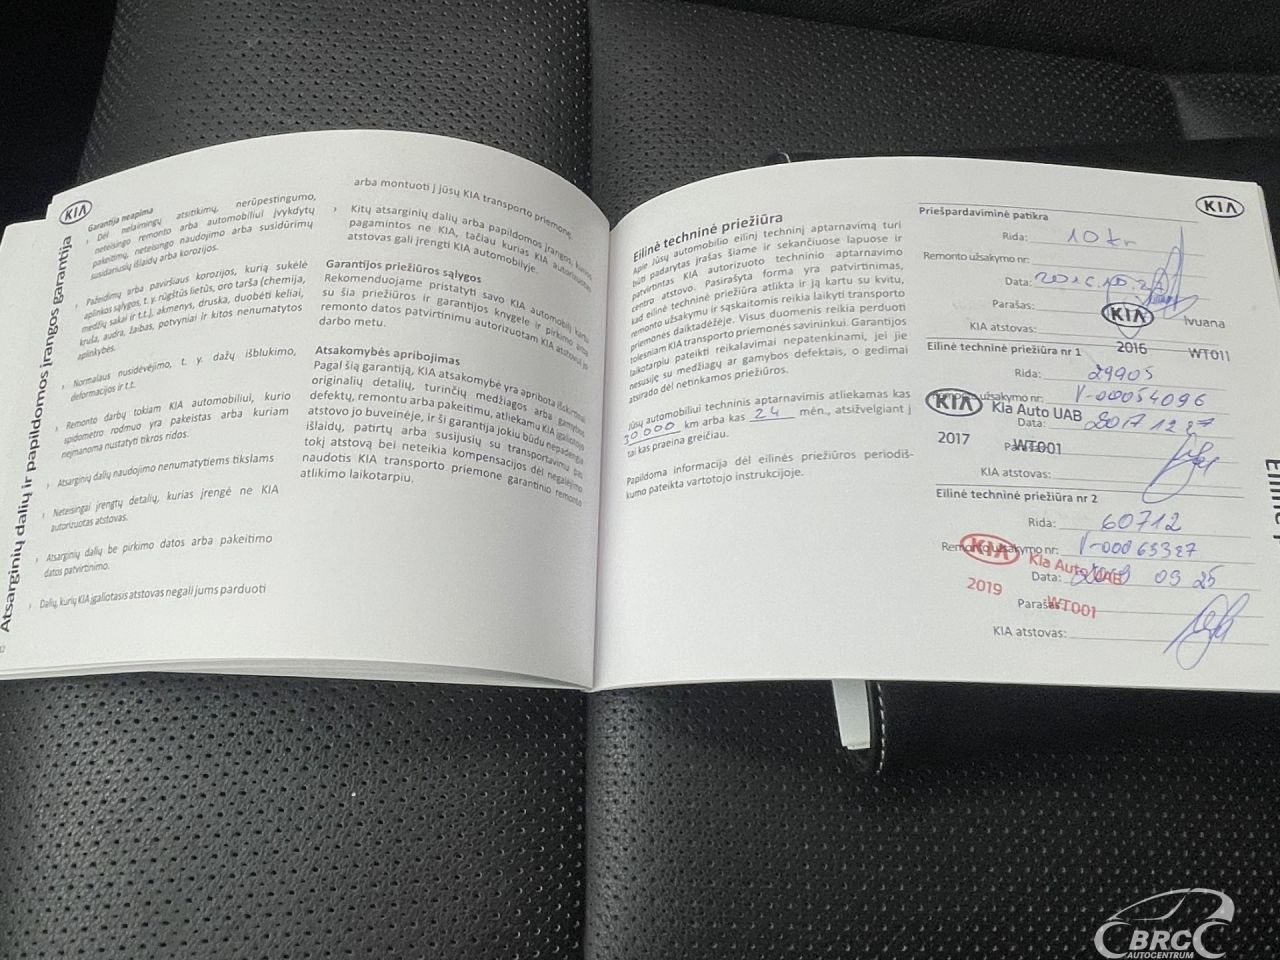 Atsarginių dalių ir papildomos įrangos garantija
KIA
Garantija neapima
› Dėl nelaimingų atsitikimų, nerūpestingumo,
neteisingo remonto arba automobiliui įvykdytų
pakeitimų, neteisingo naudojimo arba susidūrimų
susidariusių išlaidų arba korozijos.
› Pažeidimų arba paviršiaus korozijos, kurią sukėlė
aplinkos sąlygos, t. y. rūgštūs lietūs, oro tarša (chemija,
medžių sakai ir t.t.), akmenys, druska, duobėti keliai,
kruša, audra, žaibas, potvyniai ir kitos nenumatytos
aplinkybės.
› Normalaus nusidėvėjimo, t. y. dažų išblukimo,
deformacijos ir t.t.
› Remonto darbų tokiam KIA automobiliui, kurio
spidometro rodmuo yra pakeistas arba kuriam
neįmanoma nustatyti tikros ridos.
› Atsarginių dalių naudojimo nenumatytiems tikslams
› Neteisingai įrengtų detalių, kurias įrengė ne KIA
autorizuotas atstovas.
› Atsarginių dalių be pirkimo datos arba pakeitimo
datos patvirtinimo.
› Dalių, kurių KIA įgaliotasis atstovas negali jums parduoti
arba montuoti į jūsų KIA transporto priemonę.
› Kitų atsarginių dalių arba papildomos įrangos, kurios
pagamintos ne KIA, tačiau kurias KIA autorizuotas
atstovas gali įrengti KIA automobilyje.
Garantijos priežiūros sąlygos
Rekomenduojame pristatyti savo KIA automobilį kartu
su šia priežiūros ir garantijos knygele ir pirkimo arba
remonto datos patvirtinimu autorizuotam KIA atstovui jo
darbo metu.
Atsakomybės apribojimas
Pagal šią garantiją, KIA atsakomybė yra apribota išskirtinai
originalių detalių, turinčių medžiagos arba gamybos
defektų, remontu arba pakeitimu, atliekamu KIA įgaliotojo
atstovo jo buveinėje, ir ši garantija jokiu būdu nepadengia
išlaidų, patirtų arba susijusių su transportavimu pas
tokį atstovą bei neteikia kompensacijos dėl negalėjimo
naudotis KIA transporto priemone garantinio remonto
atlikimo laikotarpiu.
Eilinė techninė priežiūra
Apie Jūsų automobilio eilinį techninį aptarnavimą turi
būti padarytas įrašas šiame ir sekančiuose lapuose ir
patvirtintas KIA autorizuoto techninio aptarnavimo
centro atstovo. Pasirašyta forma yra patvirtinimas,
kad eilinė techninė priežiūra atlikta ir ją kartu su kvitu,
remonto užsakymu ir sąskaitomis reikia laikyti transporto
priemonės daiktadėžėje. Visus duomenis reikia perduoti
tolesniam KIA transporto priemonės savininkui. Garantijos
laikotarpiu pateikti reikalavimai nepatenkinami, jei jie
nesusiję su medžiagų ar gamybos defektais, o gedimai
atsirado dėl netinkamos priežiūros.
Jūsų automobiliui techninis aptarnavimas atliekamas kas
30.000 km arba kas 24 mėn., atsižvelgiant į
tai kas praeina greičiau.
Papildoma informacija dėl eilinės priežiūros periodiš-
kumo pateikta vartotojo instrukcijoje.
KIA
Priešpardaviminė patikra
Rida: 10
Remonto užsakymo nr:
Data: 2016.10.27
Parašas:
KIA Ivuana
KIA atstovas:
2016 WT011
Eilinė techninė priežiūra nr 1
Rida: 29905
Remonto užsakymo nr: V-00054096
KIA Kia Auto UAB
Data: 2017 12 27
2017 Parašas: WT001
KIA atstovas:
Eilinė techninė priežiūra nr 2
Rida: 60712
Remonto užsakymo nr: V-00065327
KIA Kia Auto UAB
Data: 2019 09 25
2019 Parašas: WT001
KIA atstovas:
BRC
AUTOCENTRUM